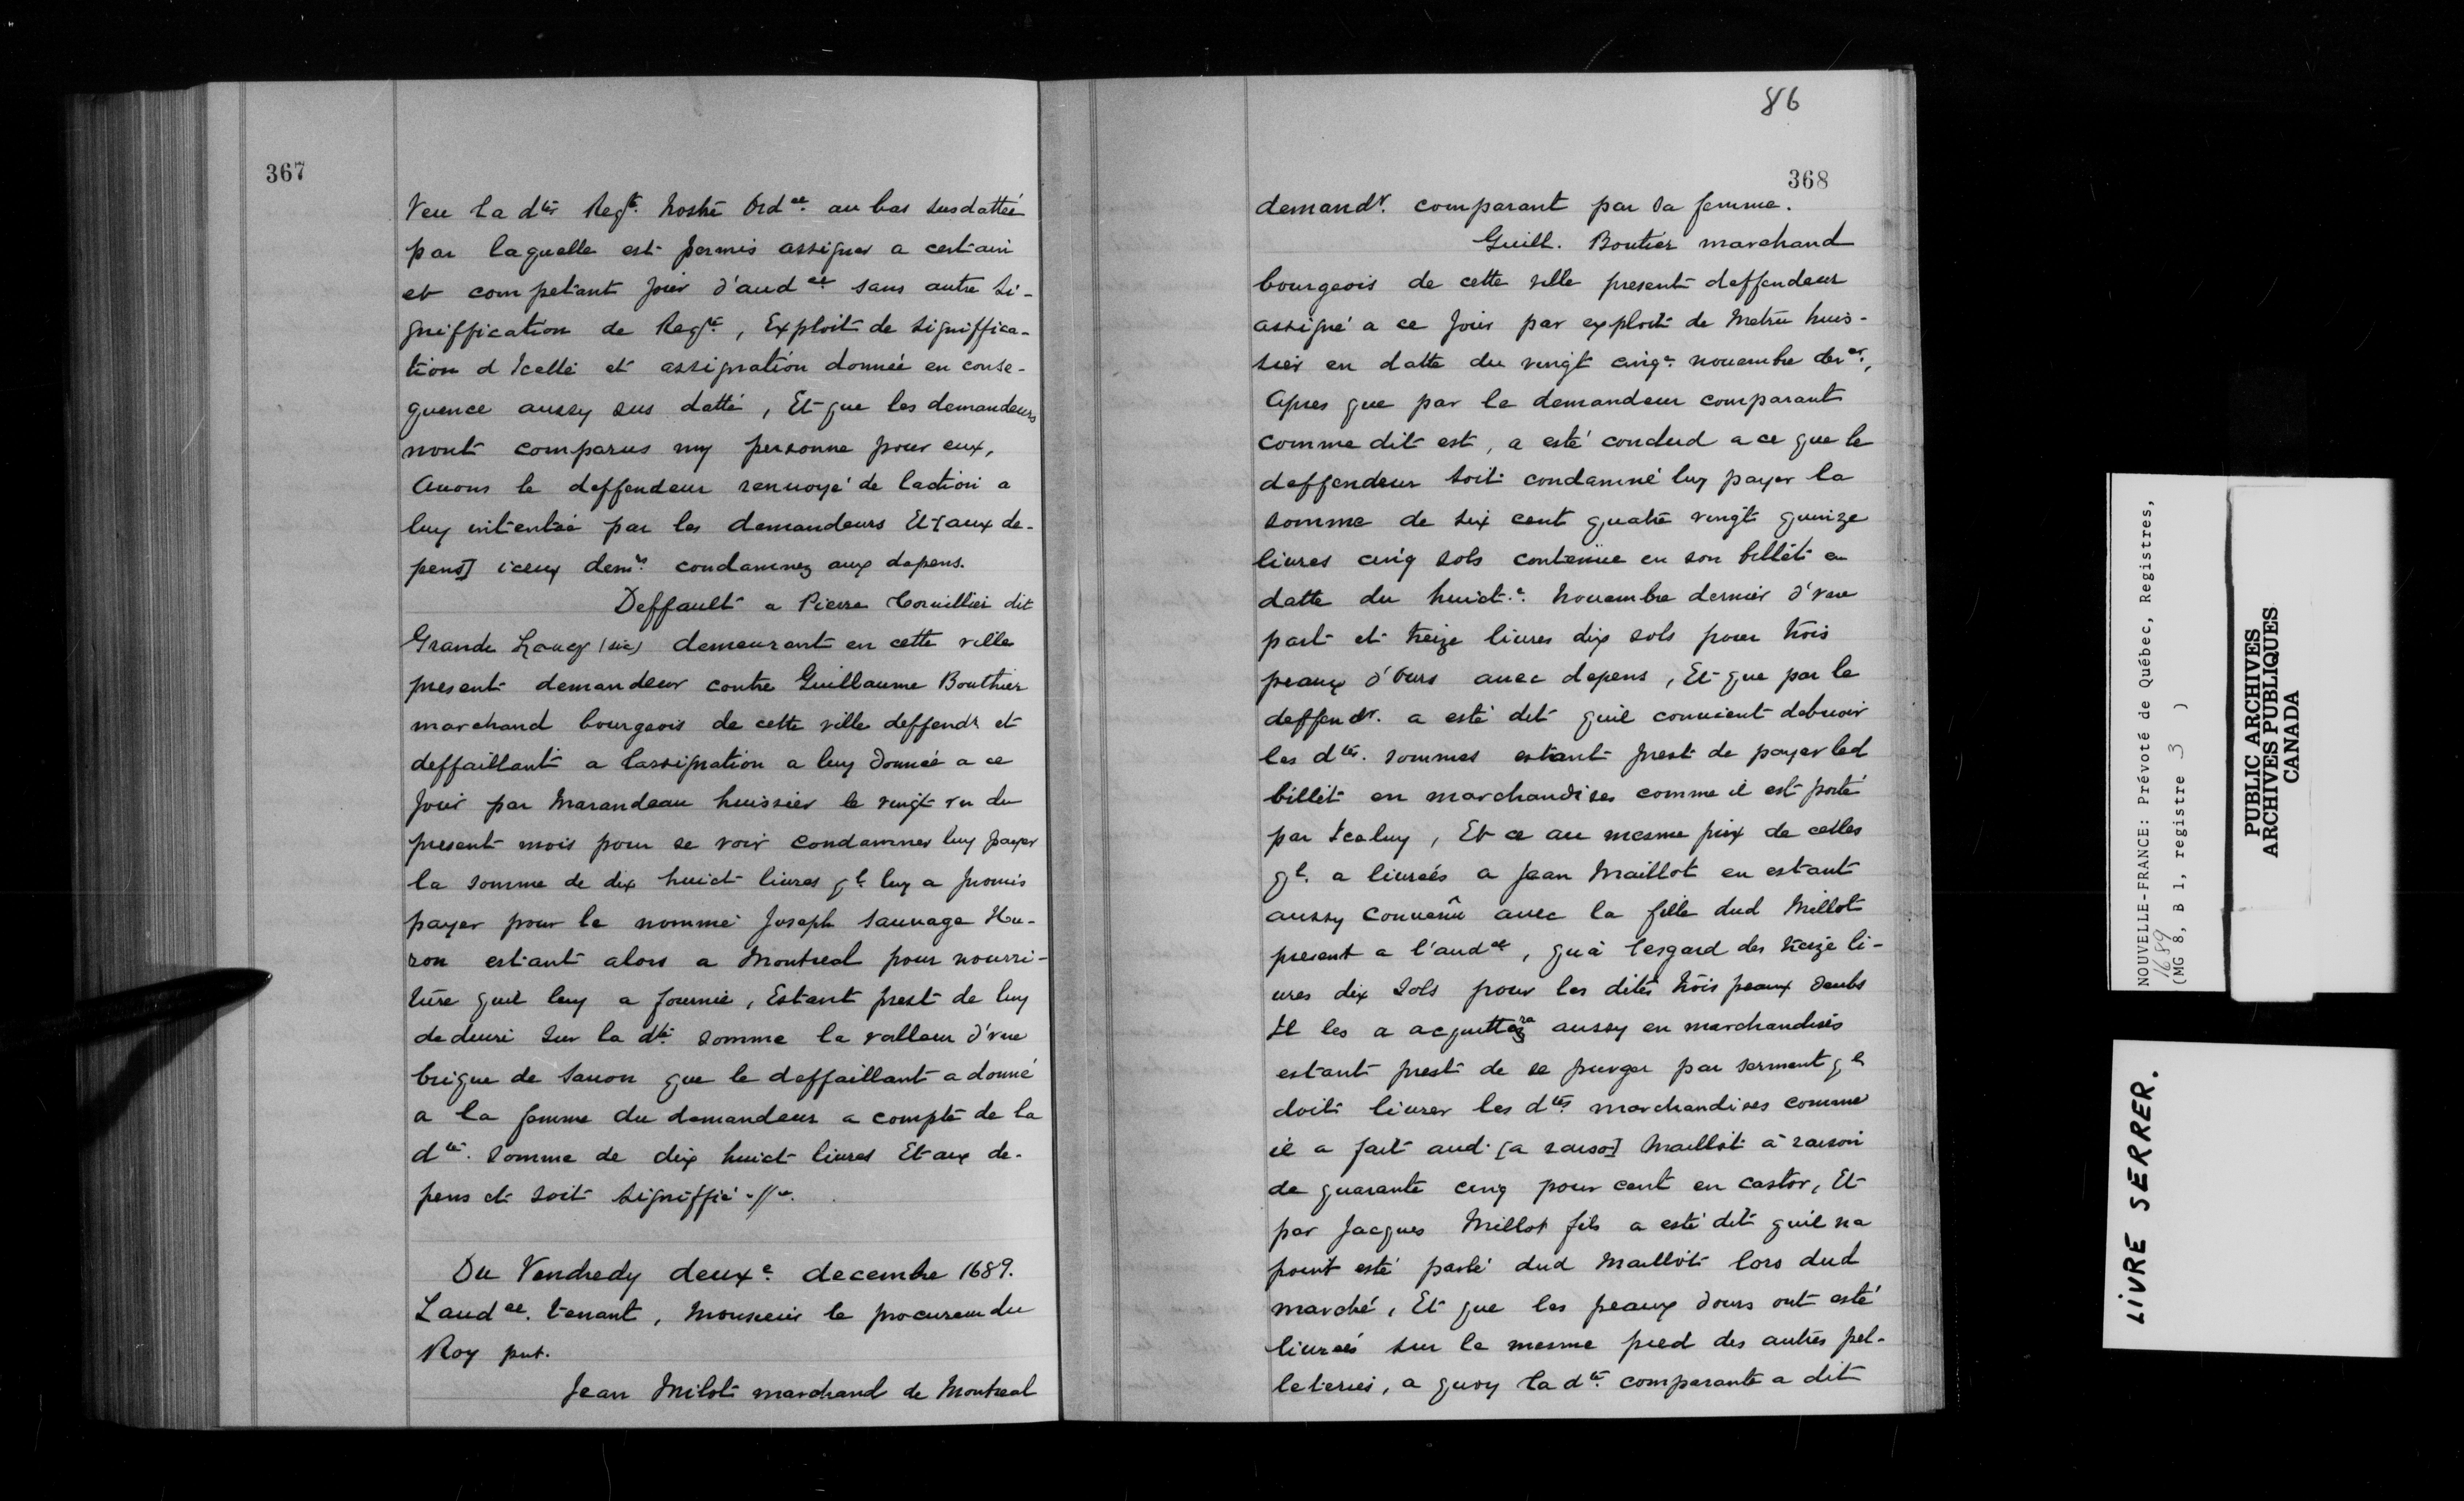 367
Veu la dte Reqte. Nostre Ordce. au bas susdattée
par laquelle est permis assigner a certain
et competant Jour d'audce. sans autre Si-
gniffication de Reqte, Exploit de Signiffica-
tion d Icelle et assignation donnée en conse-
quence aussy sus datté, Et que les demandeurs
nont comparus ny personne pour eux,
Auons le deffendeur renuoyé de laction a
luy intentée par les demandeurs Et [aux de-
pens] iceux demrs. condamnez aux depens.
Deffault a Pierre Coruillier dit
Grande (sic) demeurant en cette ville
present demandeur contre Guillaume Bouthier
marchand bourgeois de cette ville deffendr et
deffaillant a lassignation a luy donneé a ce
Jour par Marandeau huissier le vingt vn du
present mois pour se voir condamner luy payer
la somme de dix huict liures ql. luy a promis
payer pour le nommé Joseph Sauuage Hu-
ron estant alors a Montreal pour nourri-
ture quil luy a fournie, Estant prest de luy
deduire sur la dte. somme la valleur d'vne
brique de Sauon que le deffaillant a donné
a la femme du demandeur a compte de la
dte. Somme de dix huict liures Et aux de-
pens et soit signiffié .//.
Du Vendredy deuxe. decembre 1689.
Laudce. tenant, Monsieur le procureur du
Roy pnt.
Jean Milot marchand de Montreal
86
368
demandr. comparant par sa femme.
Guill. Boutier marchand
bourgeois de cette ville present deffendeur
assigné a ce Jour par exploit de Metru huis-
sier en datte du vingt cinqe. nouembre derer.,
Apres que par le demandeur comparant
comme dit est, a esté conclud a ce que le
deffendeur soit condamné luy payer la
somme de six cent quatre vingt quinze
liures cinq sols contenüe en son billet en
datte du huicte. Nouembre dernier d'vne
part et treize liures dix sols pour trois
peaux d'Ours auec depens, Et que par le
deffendr. a esté dit quil conuient debuoir
les dtes. sommes estant prest de payer led
billet en marchandises comme il est porté
par Iceluy, Et ce au mesme prix de celles
ql. a liureés a Jean Maillot en estant
aussy conuenu auec la fille dud Millot
present a l'audce, qu'à lesgard des treize li-
ures dix Sols pour les dites trois peaux doubs
Il les a acquittera aussy en marchandises
estant prest de se purger par serment ql
doit liurer les dtes marchandises comme
il a fait aud. [a raiso] Maillot a raison
de quarante cinq pour cent en castor, Et
par Jacques Millot fils a esté dit quil na
point esté parlé dud Maillot lors dud
marché, Et que les peaux dours ont esté
liureés sur le mesme pied des autres pel-
leteries, a quoy la dte. comparante a dit
NOUVELLE-FRANCE: Prévoté de Québec, Registres,
1689
(MG 8, B 1, registre 3 )
PUBLIC ARCHIVES
ARCHIVES PUBLIQUES
CANADA
LIVRE SERRER.